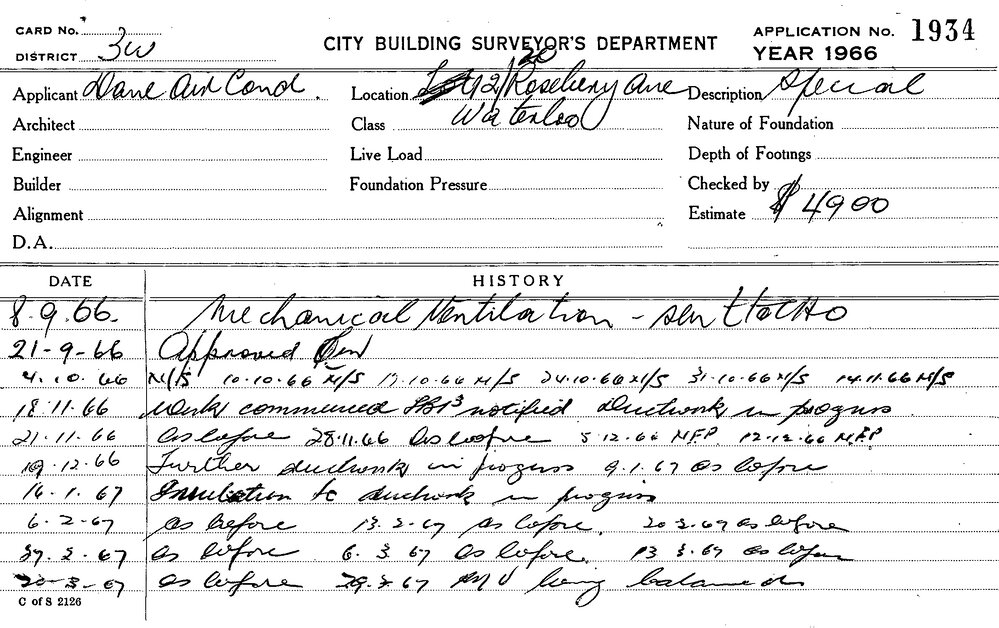 CARD No.
DISTRICT 3W
CITY BUILDING SURVEYOR'S DEPARTMENT
APPLICATION No. 1934
YEAR 1966
Applicant Dane Air Cond.
Location 12/20 Rosebery Ave
Waterloo
Description Special
Architect
Class
Nature of Foundation
Engineer
Live Load
Depth of Footings
Builder
Foundation Pressure
Checked by
Alignment
Estimate $ 4900
D.A.
DATE HISTORY
8.9.66. Mechanical Ventilation - sent to CHO
21-9-66 Approved
4.10.66 N/S 10.10.66 N/S 17.10.66 N/S 24.10.66 N/S 31.10.66 N/S 14.11.66 N/S
18.11.66 Work commenced notified Ductwork in progress.
21.11.66 as before 28.11.66 as before 5.12.66 N.F.P. 12.12.66 N.F.P
19.12.66 Further ductwork in progress 9.1.67 as before
16.1.67 Insulation to ductwork in progress
6.2.67 as before 13.2.67 as before. 20.2.67 as before
27.2.67 as before 6.3.67 as before. 13.3.67 as before
20-3-67 as before 29.3.67 M V being balanced
C of S 2126